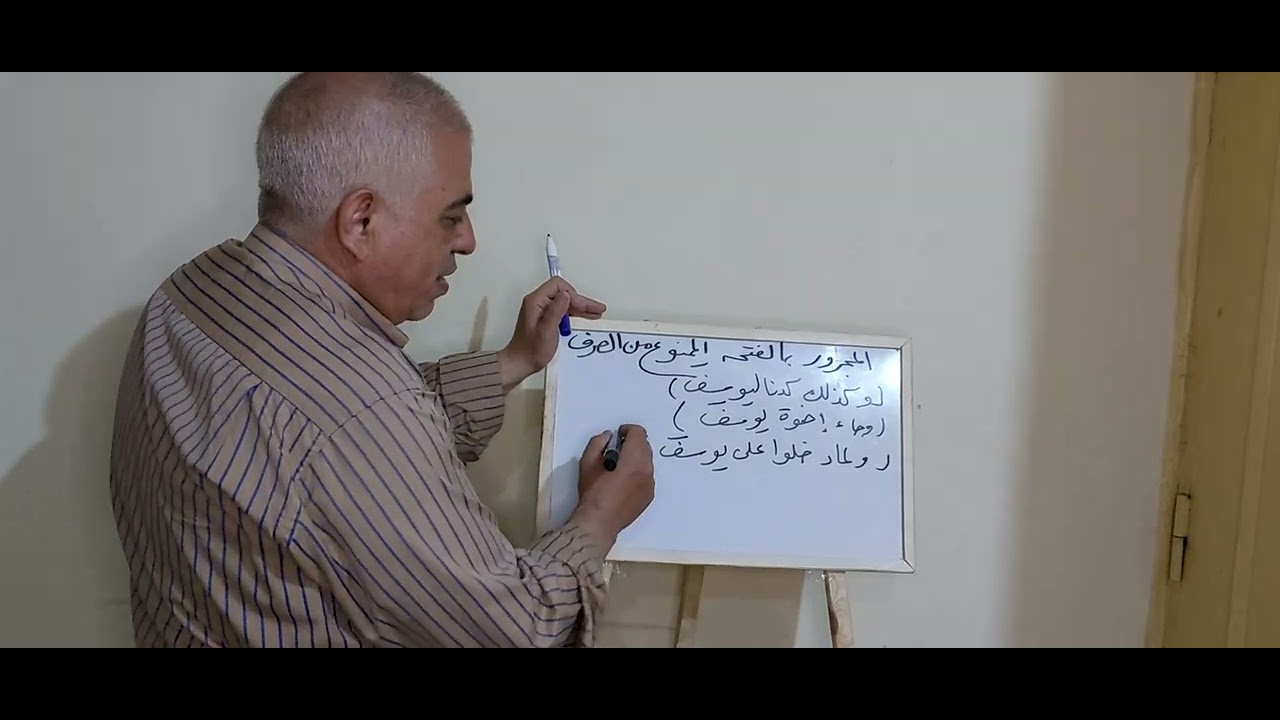 المجرور بالفتحه الممنوع من الصرف
(وكذلك كدنا ليوسف)
(وجاء إخوة يوسف)
(ولما دخلوا على يوسفَ